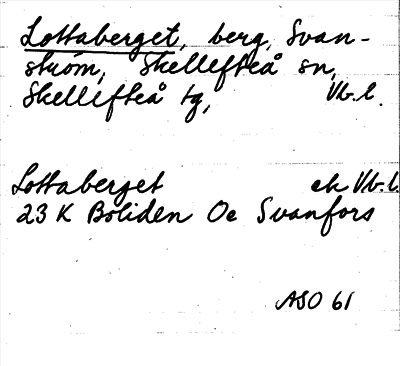 Lottaberget, berg, Svan-
ström, Skellefteå sn,
Skellefteå tg, Vb. l.
Lottaberget ek Vb. l.
23 K Boliden Oe Svanfors
ASO 61